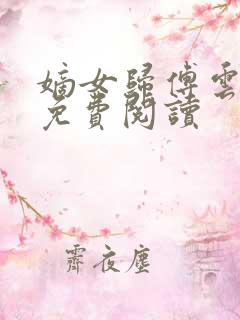 嫡女歸傅雲
免費閱讀
霽夜塵